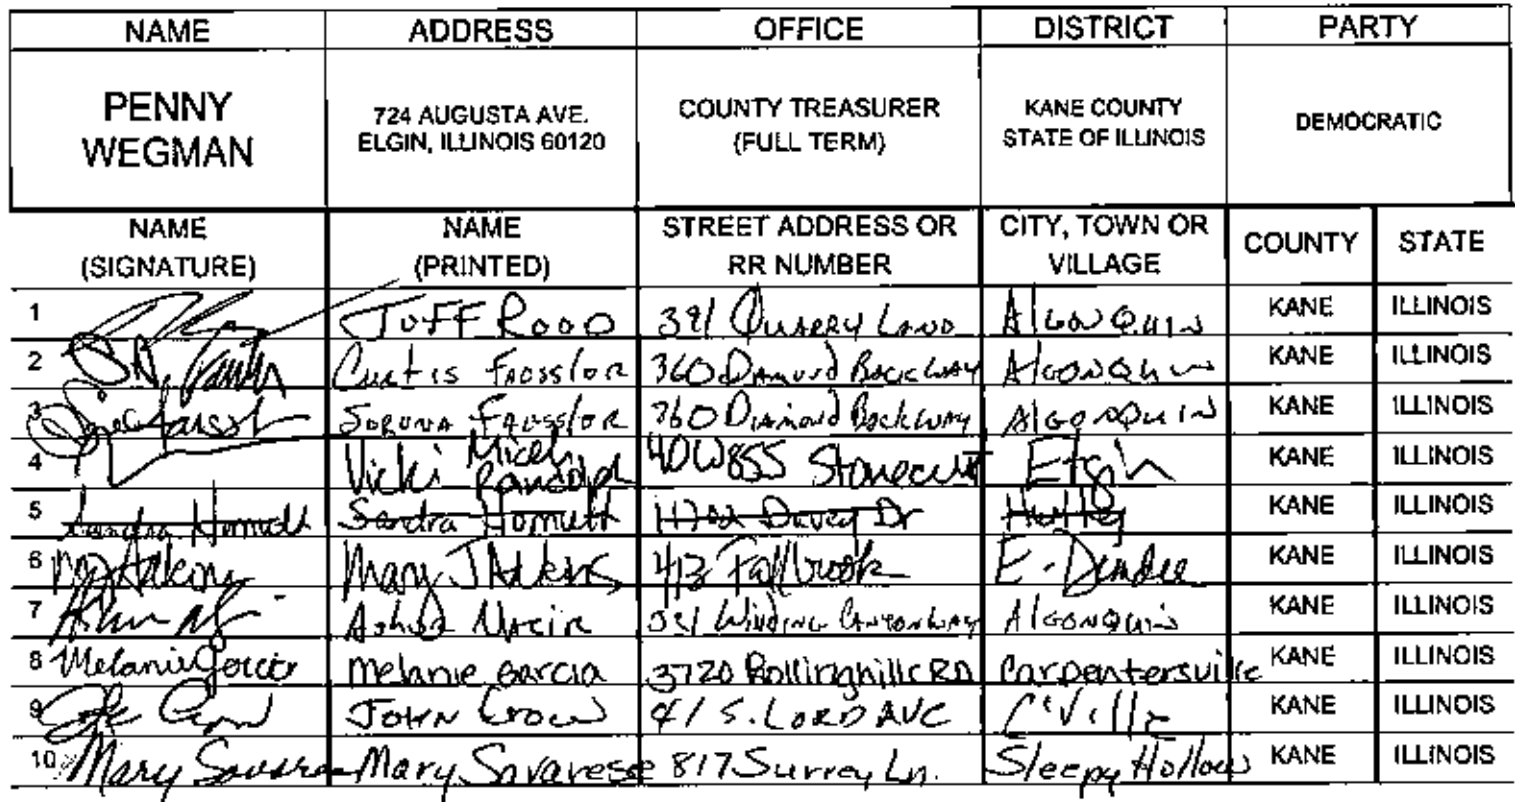 NAME ADDRESS OFFICE DISTRICT PARTY
PENNY WEGMAN 724 AUGUSTA AVE. ELGIN, ILLINOIS 60120 COUNTY TREASURER (FULL TERM) KANE COUNTY STATE OF ILLINOIS DEMOCRATIC
NAME (SIGNATURE) NAME (PRINTED) STREET ADDRESS OR RR NUMBER CITY, TOWN OR VILLAGE COUNTY STATE
1 Algonquin KANE ILLINOIS
2 Curtis 360 Diamond Back Way Algonquin KANE ILLINOIS
3 360 Diamond Back Way Algonquin KANE ILLINOIS
4 Vicki Randolph 40W855 Elgin KANE ILLINOIS
5 Sandra Davey Dr Huntley KANE ILLINOIS
6 Mary J Atkins 413 Fallbrook E. Dundee KANE ILLINOIS
7 Winding Canyon Way Algonquin KANE ILLINOIS
8 Melanie Garcia Melanie Garcia 3720 Rollinghills RD Carpentersville KANE ILLINOIS
9 John Crow 41 S. Lord Ave C'Ville KANE ILLINOIS
10 Mary Mary Savarese 817 Surrey Ln. Sleepy Hollow KANE ILLINOIS